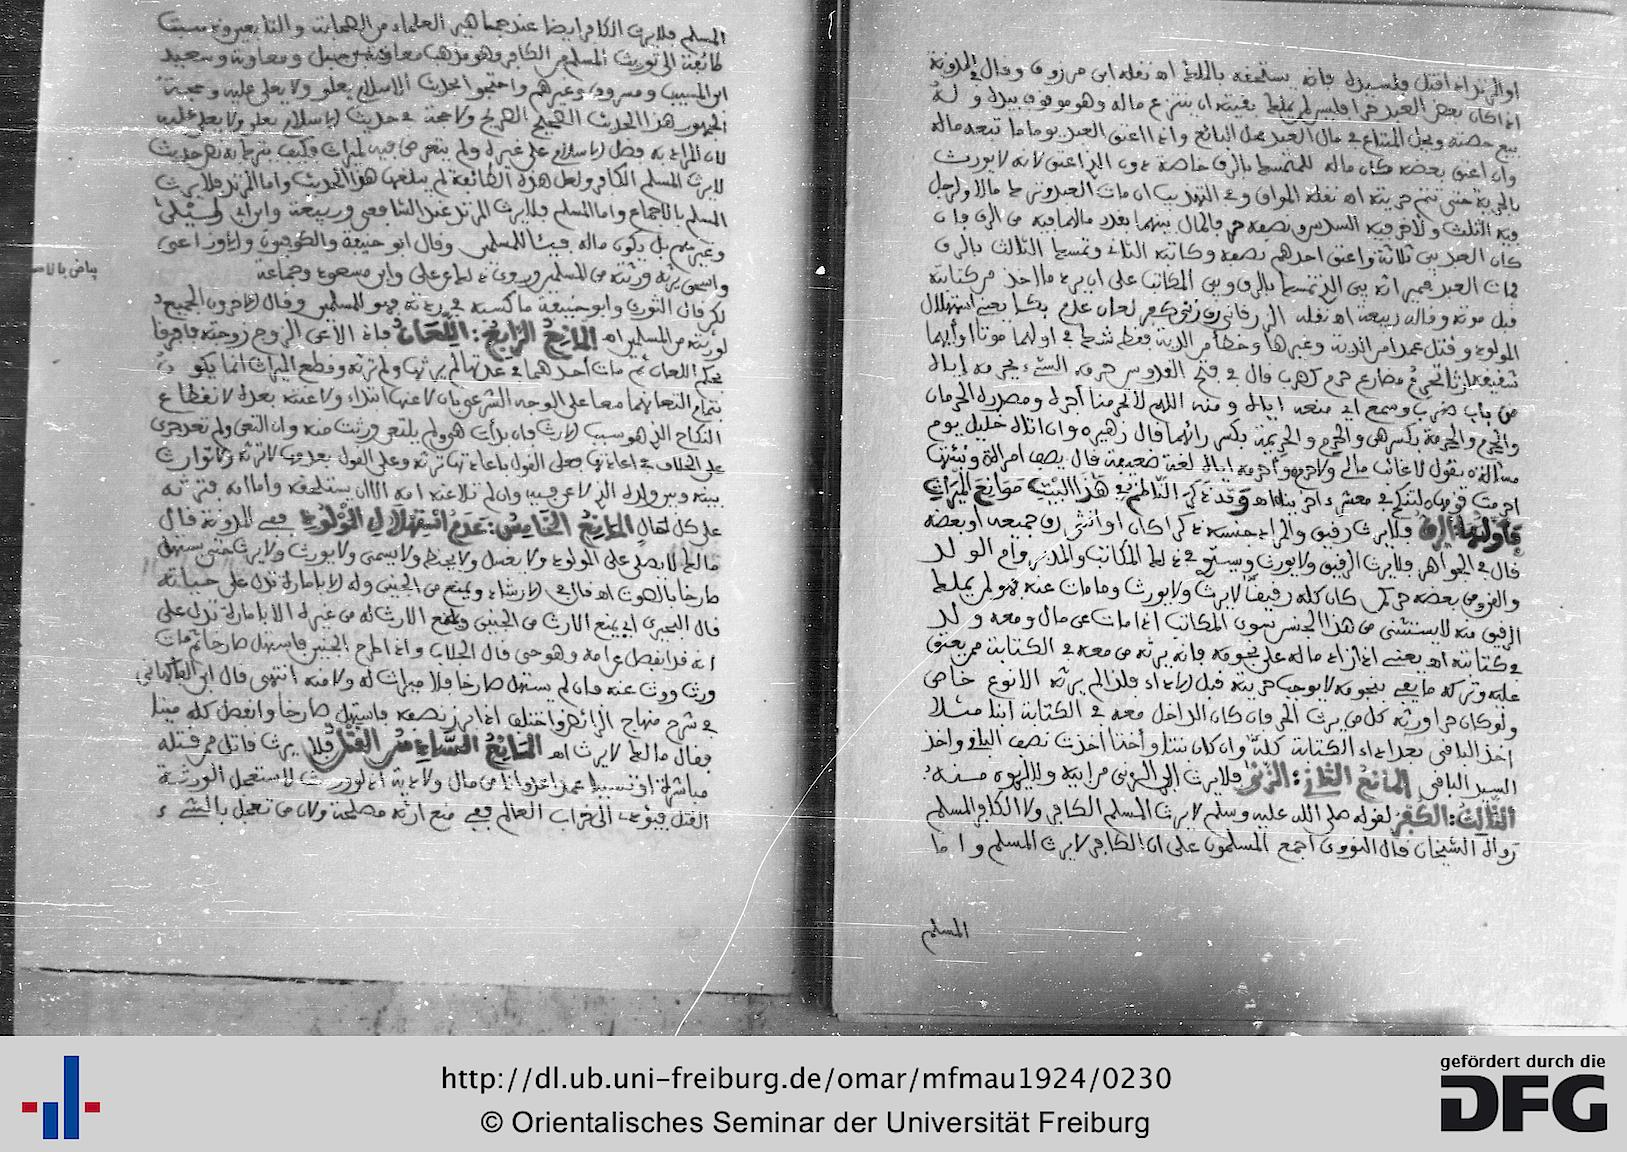 او المرتد اذا قتل فلسيده فانه يستحقه بالملك اه نقله ابن مرزوق وقال في المدونة
اذا كان بعض العبد حرا فليس لمن يملك بقيته ان ينتزع ماله وهو موقوف بيده وله
بيع حصته ويحل المبتاع في مال العبد محل البائع واذا اعتق العبد يوما ما تبعه ماله
وان اعتق بعضه كان ماله للمتمسك بالرق خاصة دون الذي اعتق لانه لا يورث
بالحرية حتى تتم حريته اه نقله المواق وفي التهذيب ان مات العبد وترك مالا ولرجل
فيه الثلث ولآخر فيه السدس ونصفه حر فالمال بينهما بقدر ما لهما فيه من الرق وان
كان العبد بين ثلاثة واعتق احدهم نصفه وكاتبه الثاني وتمسك الثالث بالرق
فمات العبد فميراثه بين الذي تمسك بالرق وبين المكاتب على ان يرد ما اخذ من كتابته
قبل موته وقاله ربيعة اه نقله الزرقاني
المولود وقتل عمدا من الدية وغيرها وخطأ من الدية فقط
مضارع حرم كضرب قال في فتح القدوس حرمه الشيء يحرمه اياه
من باب ضرب وسمع اي منعه اياه ومنه اللهم لا تحرمنا أجره ومصدره الحرمان
والحرم والحرمة بكسرهن والحرم والحريمة بكسر رائهما قال زهير وان اتاه خليل يوم
مسألة يقول لا غائب مالي ولا حرم وأحرمه اياه لغة ضعيفة قال يصف امرأة ونبئتها
احرمت قومها لتنكح في معشر آخرينا اه وقد ذكر الناظم في هذا البيت موانع الميراث
فأولها الرق فلا يرث رقيق والمراد جنسه ذكرا كان او انثى رق جميعه او بعضه
قال في الجواهر فلا يرث الرقيق ولا يورث ويستوي في ذلك المكاتب والمدبر وام الولد
والقن ومن بعضه حر كمن كان كله رقيقا لا يرث ولا يورث وما مات عنه فهو لمن يملك
الرق منه لا يستثنى من هذا الجنس سوى المكاتب اذا مات عن مال ومعه ولد
في كتابته اه يعني اذا زاد ماله على نجومه فانه يرثه من معه في الكتابة ممن يعتق
عليه وتركه ما يفي بنجومه لا يوجب حريته قبل الاداء فلذا لم يرثه الا نوع خاص
ولو كان حرا ورثه كل من يرث الحر فان كان الداخل معه في الكتابة ابنا مثلا
اخذ الباقي بعد اداء الكتابة كله وان كان بنتا أو أختا اخذت نصف الباقي واخذ
السيد الباقي المانع الثاني: الزنى فلا يرث ابن الزنى من ابيه ولا ابوه منه
الثالث: الكفر لقوله صلى الله عليه وسلم لا يرث المسلم الكافر ولا الكافر المسلم
رواه الشيخان قال النووي اجمع المسلمون على ان الكافر لا يرث المسلم واما
المسلم
المسلم فلا يرث الكافر ايضا عند جماهير العلماء من الصحابة والتابعين وذهبت
طائفة الى توريث المسلم من الكافر وهو مذهب معاذ بن جبل ومعاوية وسعيد
ابن المسيب ومسروق وغيرهم واحتجوا بحديث الاسلام يعلو ولا يعلى عليه وحجة
الجمهور هذا الحديث الصحيح الصريح ولا حجة في حديث الاسلام يعلو ولا يعلى عليه
لان المراد به فضل الاسلام على غيره ولم يتعرض فيه لميراث فكيف يترك به نص حديث
لا يرث المسلم الكافر ولعل هذه الطائفة لم يبلغها هذا الحديث واما المرتد فلا يرث
المسلم بالاجماع واما المسلم فلا يرث المرتد عند الشافعي وربيعة وابن ابي ليلى
وغيرهم بل يكون ماله فيئا للمسلمين وقال ابو حنيفة والكوفيون والاوزاعي
واسحق يرثه ورثته من المسلمين وروي ذلك عن علي وابن مسعود وجماعة
بياض بالاصل
لكن قال الثوري وابو حنيفة ما كسبه في ردته فهو للمسلمين وقال الآخرون الجميع
لورثته من المسلمين اه المانع الرابع: اللعان فاذا لاعن الزوج زوجته
اللعان ثم مات أحدهما في عدتها لم يرثها ولم ترثه وقطع الميراث انما يكون
بتمام التعانهما معا على الوجه الشرعي بان لاعنها ابتداء ولاعنته بعده لانقطاع
النكاح الذي هو سبب الارث فان بدأت هي ولم يلتعن ورثت منه وان التعن ولم تعد جرى
على الخلاف في اعادتها فعلى القول باعادتها ترثه وعلى القول بعدمها لا ترثه ولا توارث
بينه وبين ولده الذي لاعن فيه وان لم تلاعنه امه الا ان يستلحقه واما امه فترثه
على كل حال المانع الخامس: عدم استهلال المولود ففي المدونة قال
مالك لا يصلى على المولود ولا يغسل ولا يحنط ولا يسمى ولا يورث ولا يرث حتى يستهل
صارخا بالصوت اه قال في الارشاد ويمنع من الجنين وله الا بامارة تدل على حياته
قال البحيري اي يمنع الارث من الجنين ويمنع الارث له من غيره الا بامارة تدل على
انه قد انفصل عن امه وهو حي قال الجلاب واذا طرح الجنين فاستهل صارخا ثم مات
ورث وورث عنه فان لم يستهل صارخا فلا ميراث له ولا منه انتهى قال ابن الفاكهاني
في شرح منهاج الرائض واختلف اذا برز نصفه فاستهل صارخا وانفصل كله ميتا
فقال مالك لا يرث اه المانع السادس القتل فلا يرث قاتل ممن قتله
مباشرة او تسببا عمدا عدوانا من مال ولا دية اذ لو ورث لاستعجل الورثة
القتل فيؤدي الى خراب العالم ففي منع ارثه مصلحة ولان من تعجل بالشيء
http://dl.ub.uni-freiburg.de/omar/mfmau1924/0230
© Orientalisches Seminar der Universität Freiburg
gefördert durch die
DFG